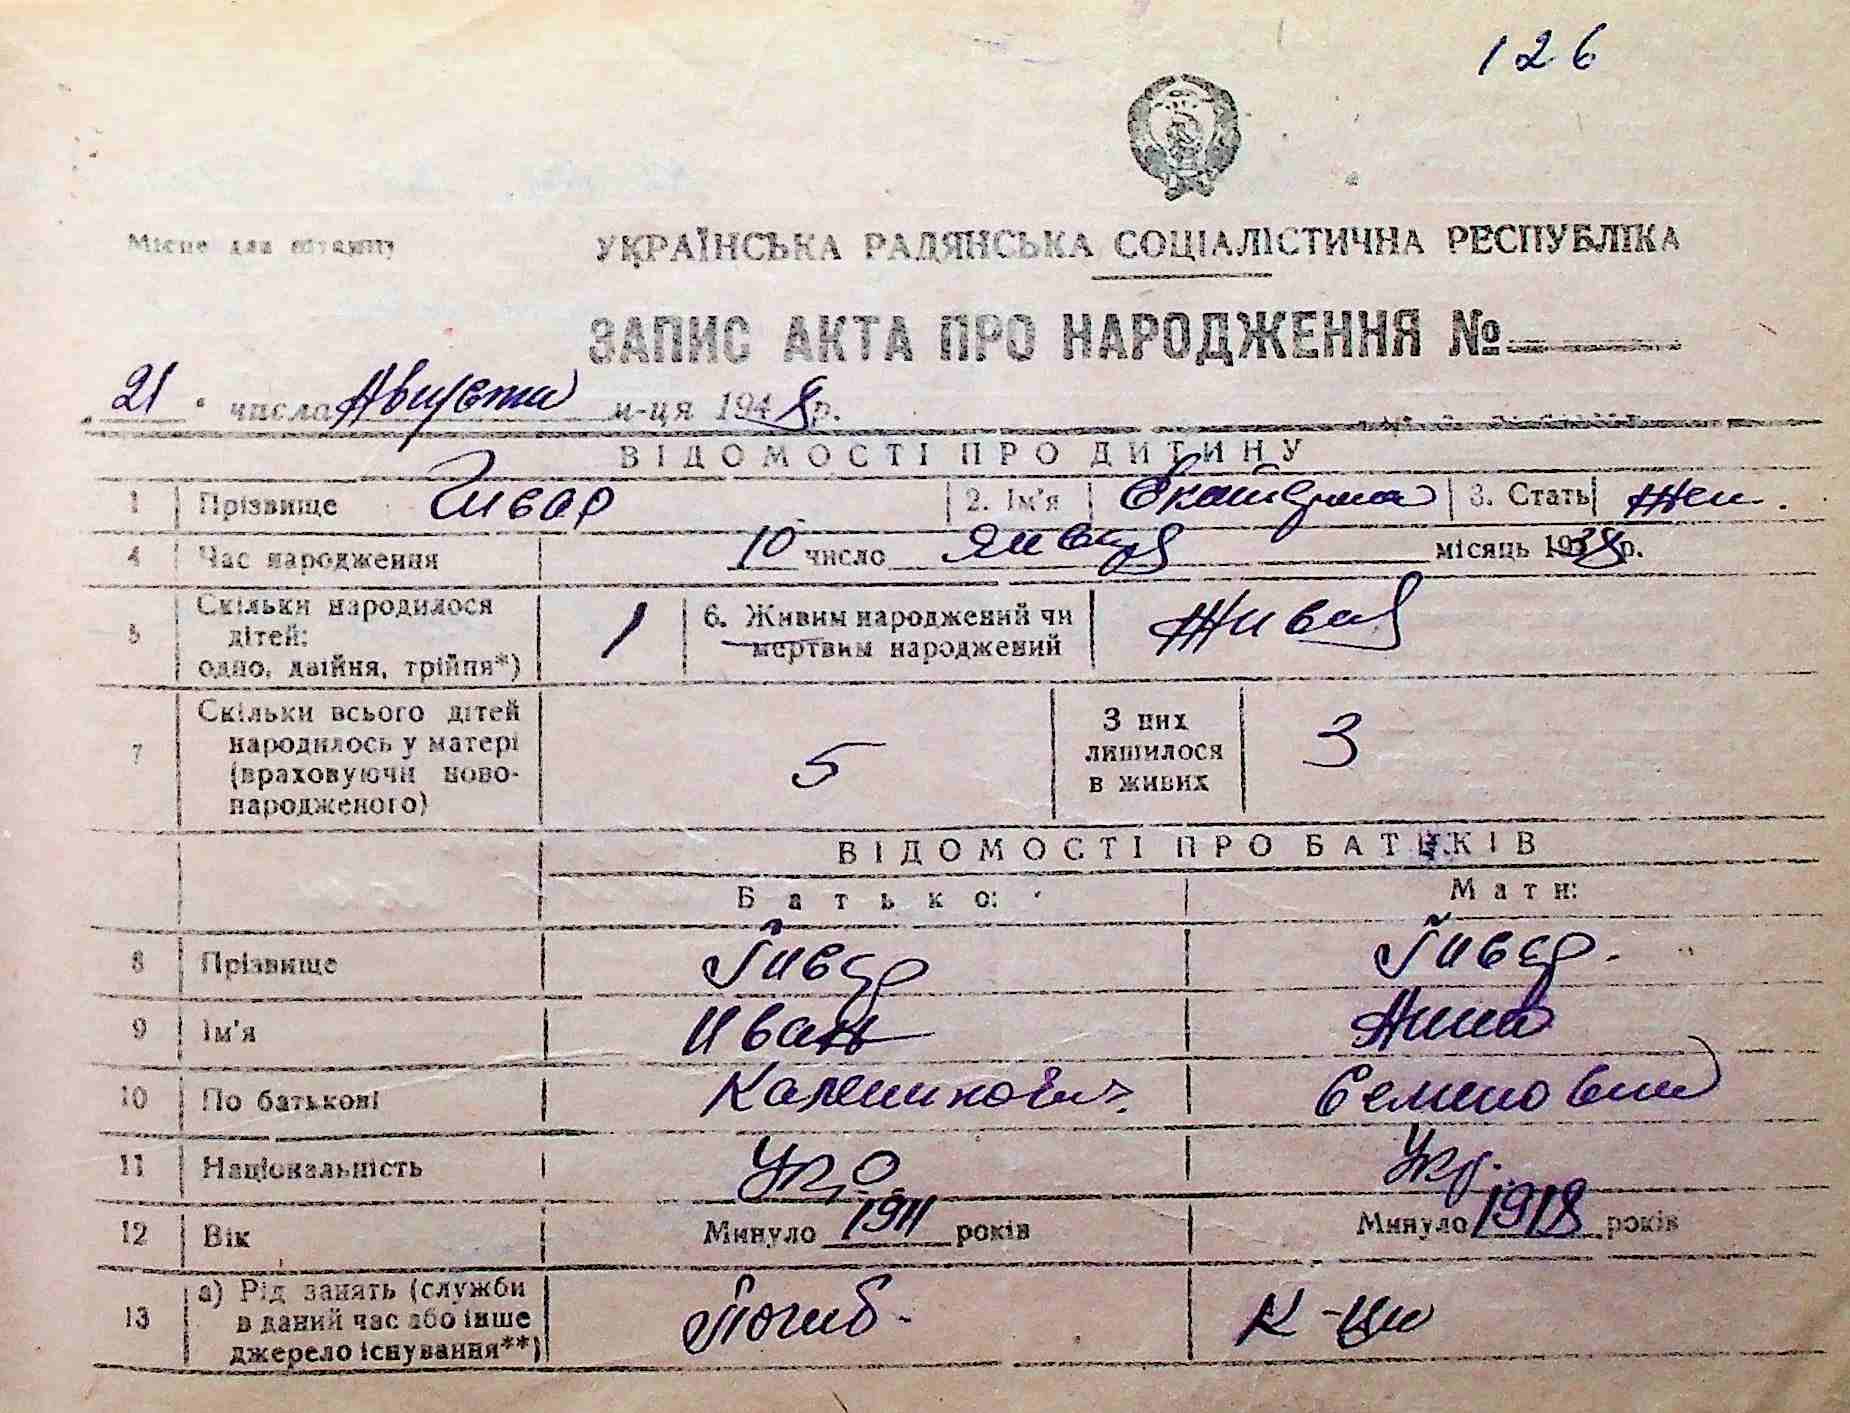 126
Місце для штампу УКРАЇНСЬКА РАДЯНСЬКА СОЦІАЛІСТИЧНА РЕСПУБЛІКА
ЗАПИС АКТА ПРО НАРОДЖЕННЯ №
„21“ числа Августа м-ця 1948 р.
ВІДОМОСТІ ПРО ДИТИНУ
1 Прізвище Гивер 2. Ім'я Екатерина 3. Стать Жен.
4 Час народження 10 число Января місяць 1938 р.
5 Скільки народилося дітей: одно, двійня, трійня*) 1 6. Живим народжений чи мертвим народжений Живая
7 Скільки всього дітей народилось у матері (враховуючи новонародженого) 5 З них лишилося в живих 3
ВІДОМОСТІ ПРО БАТЬКІВ
Батько: Мати:
8 Прізвище Гивер Гивер.
9 Ім'я Иван Анна
10 По батькові Каленикович. Семеновна
11 Національність Укр. Укр.
12 Вік Минуло 1911 років Минуло 1918 років
13 а) Рід занять (служби в даний час або інше джерело існування**) Погиб. К-ца